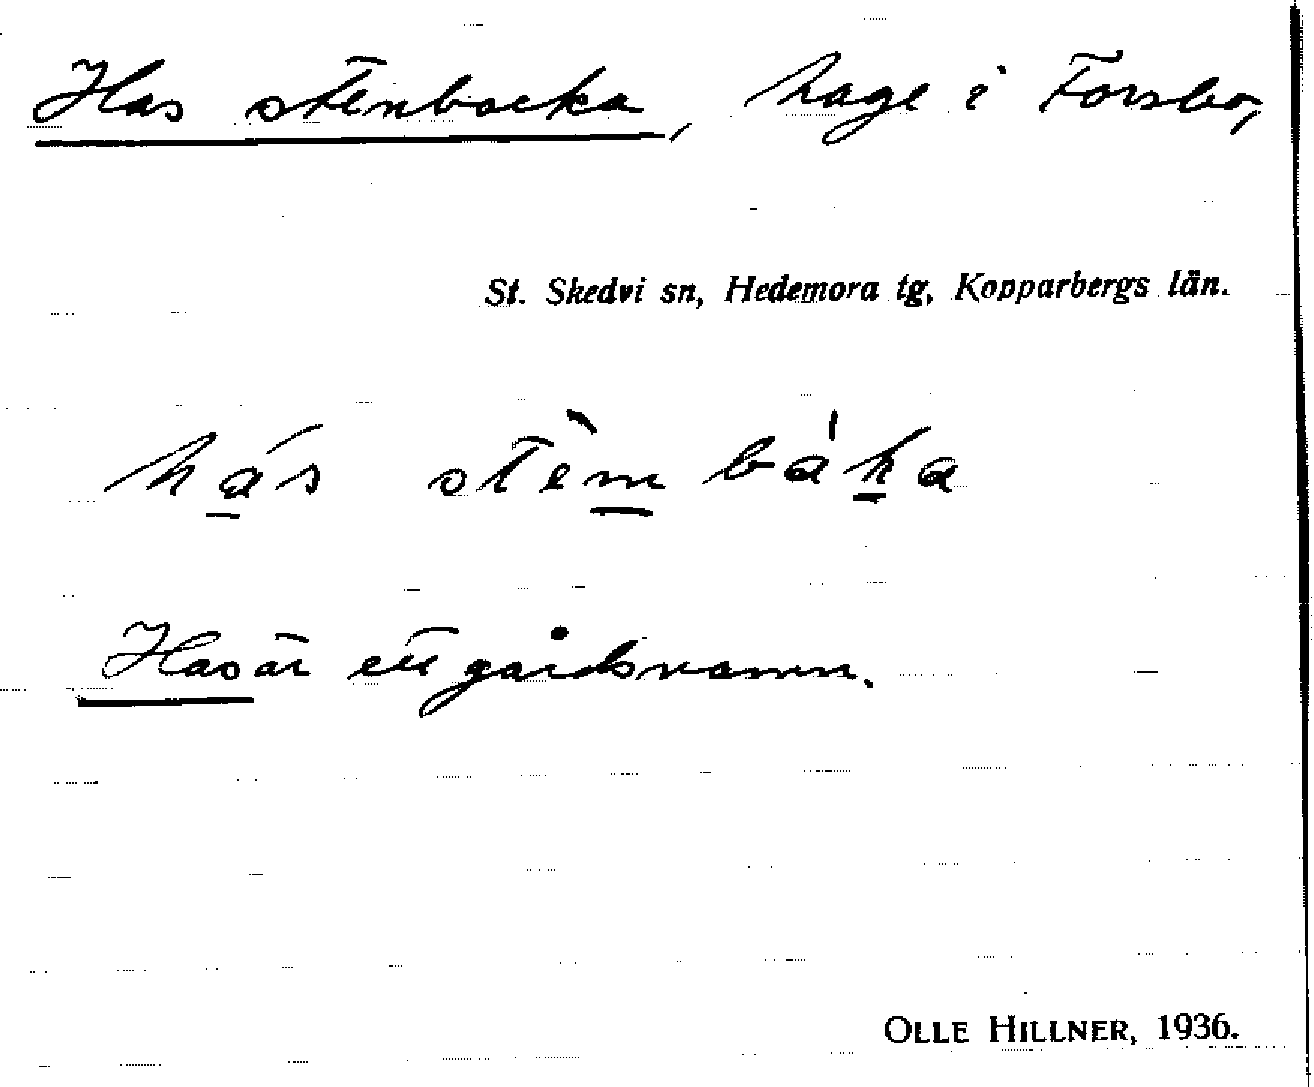 Has stenbocka, hage i Forsbo,
St. Skedvi sn, Hedemora tg, Kopparbergs län.
há̱s stèm̱ båḵa
Has är ett gårdsnamn.
OLLE HILLNER, 1936.